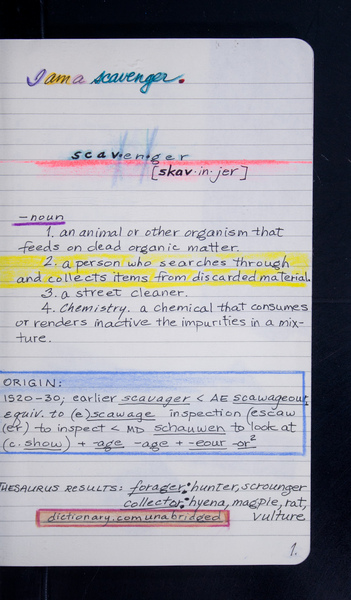 I am a scavenger.
scav·en·ger
[skav·in·jer]
—noun
1. an animal or other organism that
feeds on dead organic matter.
2. a person who searches through
and collects items from discarded material.
3. a street cleaner.
4. Chemistry. a chemical that consumes
or renders inactive the impurities in a mix-
ture.
ORIGIN:
1520-30; earlier scavager < AE scawageour,
equiv. to (e)scawage inspection (escaw
(er) to inspect < MD schauwen to look at
(c. show) + -age -age + -eour -or²
THESAURUS RESULTS: forager: hunter, scrounger
collector: hyena, magpie, rat,
dictionary.com unabridged vulture
1.